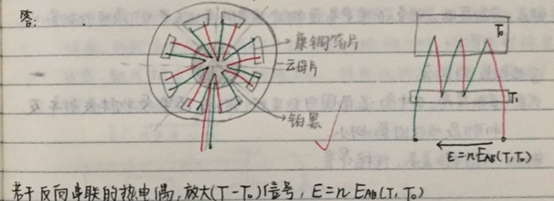 答:
康铜箔片
云母片
铂黑
T₀
T₁
E=nE_AB(T,T₀)
若干反向串联的热电偶,放大(T-T₀)信号, E=n E_AB(T,T₀)